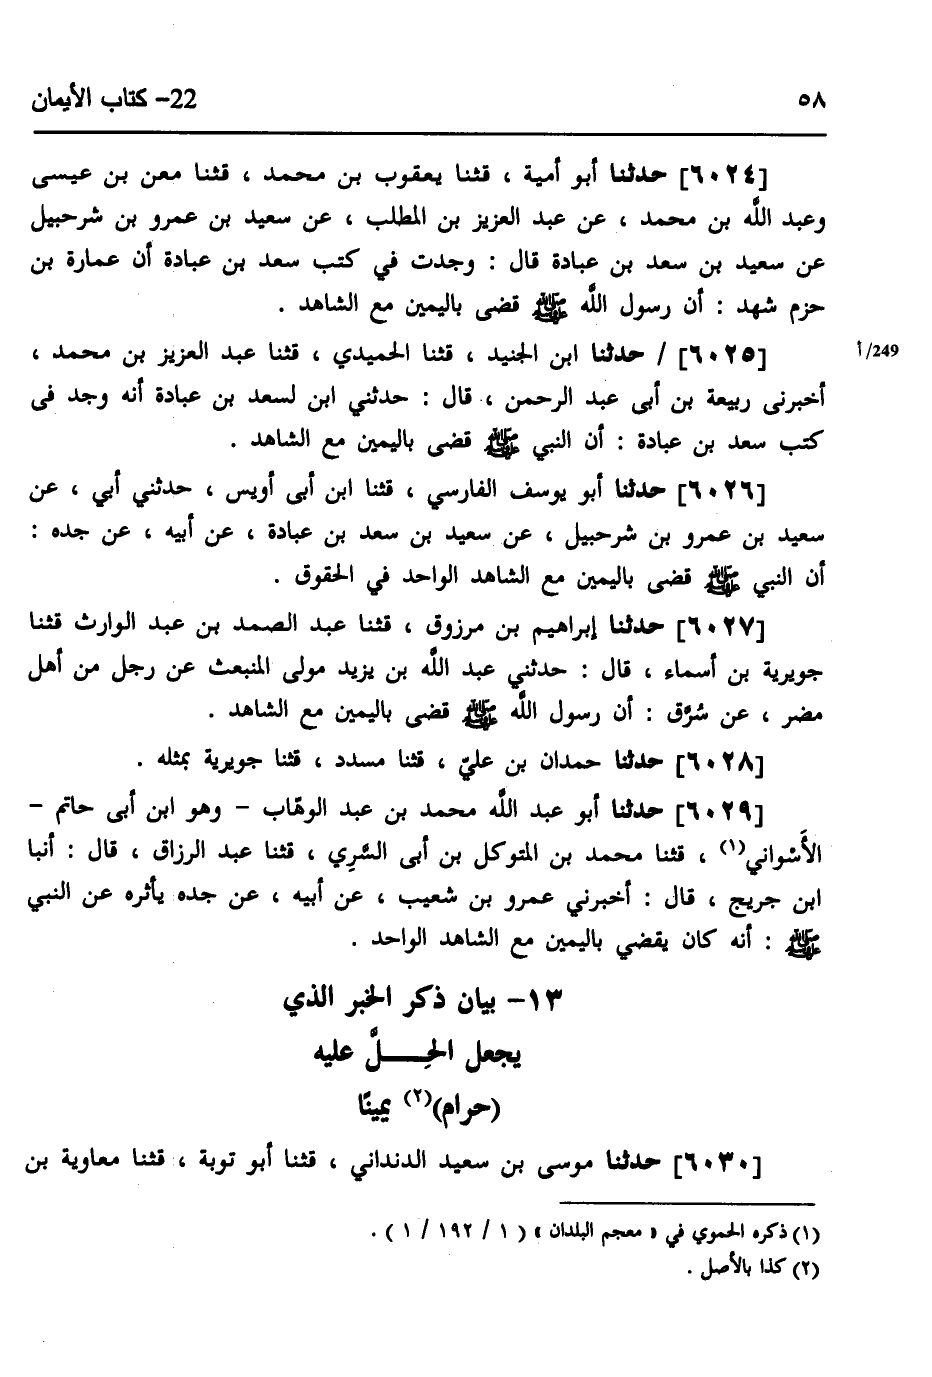 ٥٨ 22- كتاب الأيمان
[٦٠٢٤] حدثنا أبو أمية ، قثنا يعقوب بن محمد ، قثنا معن بن عيسى
وعبد اللَّه بن محمد ، عن عبد العزيز بن المطلب ، عن سعيد بن عمرو بن شرحبيل
عن سعيد بن سعد بن عبادة قال : وجدت في كتب سعد بن عبادة أن عمارة بن
حزم شهد : أن رسول اللَّه ﷺ قضى باليمين مع الشاهد .
[٦٠٢٥] / حدثنا ابن الجنيد ، قثنا الحميدي ، قثنا عبد العزيز بن محمد ، 249/أ
أخبرنى ربيعة بن أبى عبد الرحمن ، قال : حدثني ابن لسعد بن عبادة أنه وجد فى
كتب سعد بن عبادة : أن النبي ﷺ قضى باليمين مع الشاهد .
[٦٠٢٦] حدثنا أبو يوسف الفارسي ، قثنا ابن أبى أويس ، حدثني أبي ، عن
سعيد بن عمرو بن شرحبيل ، عن سعيد بن سعد بن عبادة ، عن أبيه ، عن جده :
أن النبي ﷺ قضى باليمين مع الشاهد الواحد في الحقوق .
[٦٠٢٧] حدثنا إبراهيم بن مرزوق ، قثنا عبد الصمد بن عبد الوارث قثنا
جويرية بن أسماء ، قال : حدثني عبد اللَّه بن يزيد مولى المنبعث عن رجل من أهل
مضر ، عن سُرَّق : أن رسول اللَّه ﷺ قضى باليمين مع الشاهد .
[٦٠٢٨] حدثنا حمدان بن عليّ ، قثنا مسدد ، قثنا جويرية بمثله .
[٦٠٢٩] حدثنا أبو عبد اللَّه محمد بن عبد الوهّاب – وهو ابن أبى حاتم –
الأَسْواني(١) ، قثنا محمد بن المتوكل بن أبى السَّرِي ، قثنا عبد الرزاق ، قال : أنبا
ابن جريج ، قال : أخبرني عمرو بن شعيب ، عن أبيه ، عن جده يأثره عن النبي
ﷺ : أنه كان يقضي باليمين مع الشاهد الواحد .
١٣- بيان ذكر الخبر الذي
يجعل الحِـــلَّ عليه
(حرام)(٢) يمينًا
[٦٠٣٠] حدثنا موسى بن سعيد الدنداني ، قثنا أبو توبة ، قثنا معاوية بن
(١) ذكره الحموي في « معجم البلدان » ( ١ / ١٩٢ / ١ ) .
(٢) كذا بالأصل .